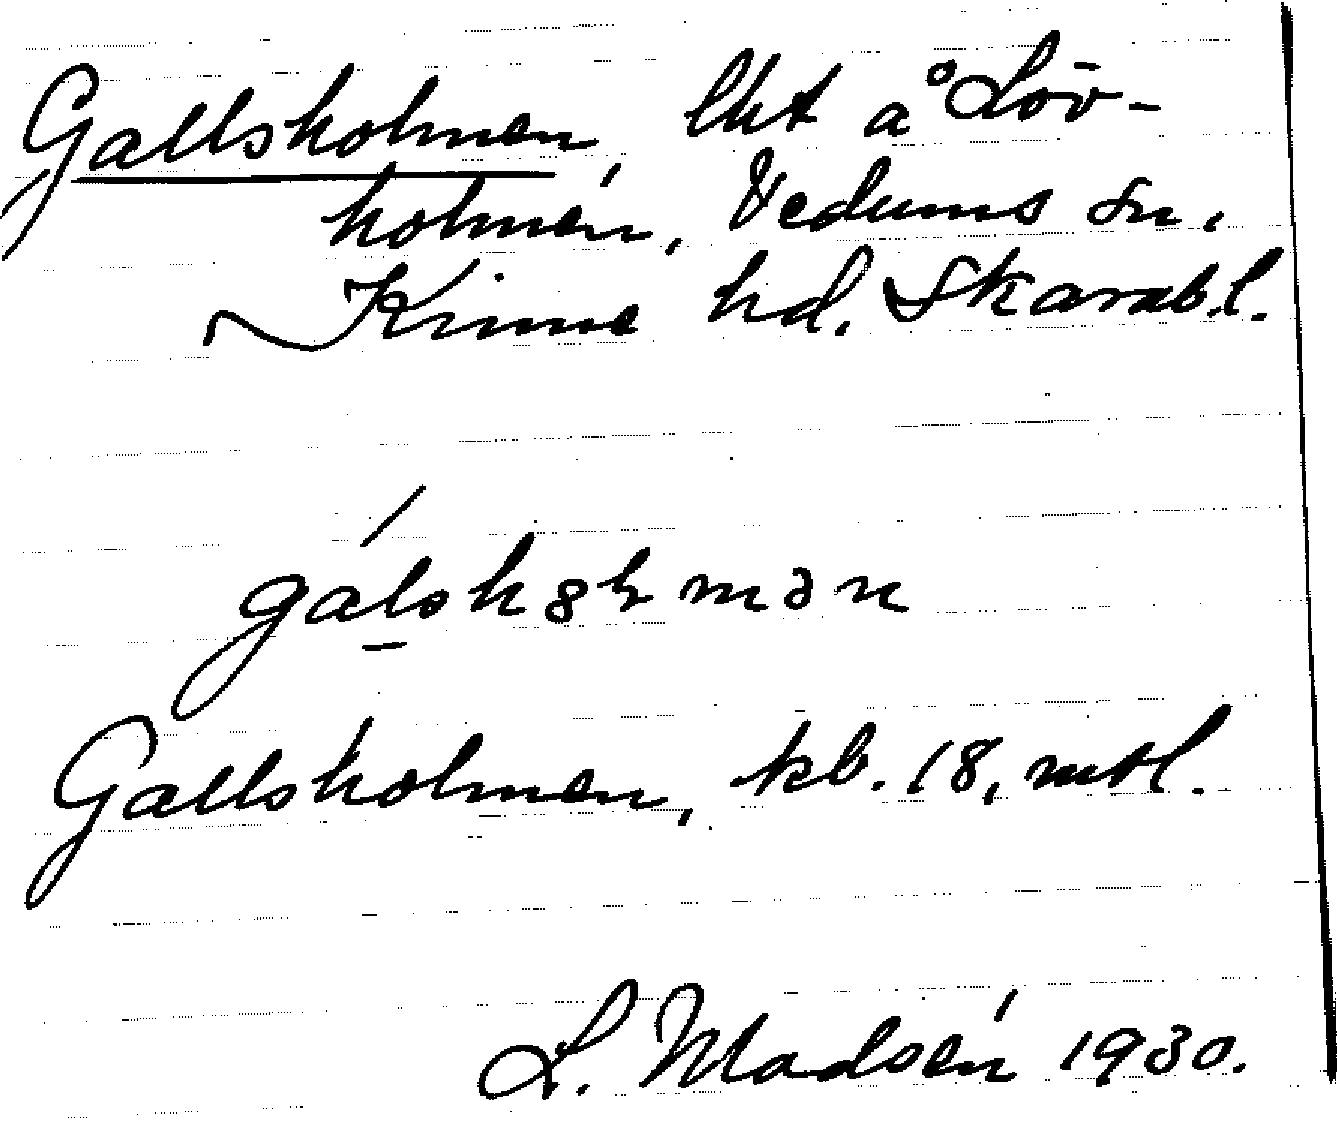 Gallsholmen, lht å Löv-
holmen, Vedums sn,
Kinne hd, Skarab.l.
galshȣlmən
Gallsholmen, kb. 18, mtl.
L. Madsén 1930.